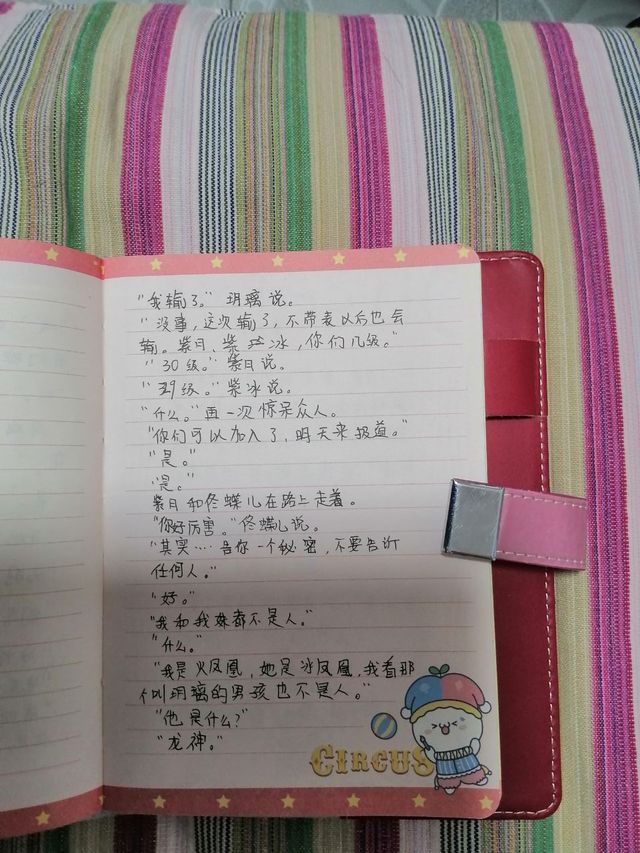 "我输了。"玥璃说。
"没事,这次输了,不带表以后也会
输。紫月、紫冰,你们几级。"
"30级。"紫月说。
"29级。"紫冰说。
"什么。"再一次惊呆众人。
"你们可以加入了,明天来报道。"
"是。"
"是。"
紫月和佟蝶儿在路上走着。
"你好厉害。"佟蝶儿说。
"其实····告你一个秘密,不要告诉
任何人。"
"好。"
"我和我妹都不是人。"
"什么。"
"我是火凤凰,她是冰凤凰,我看那
个叫玥璃的男孩也不是人。"
"他是什么?"
"龙神。"
CIRCUS